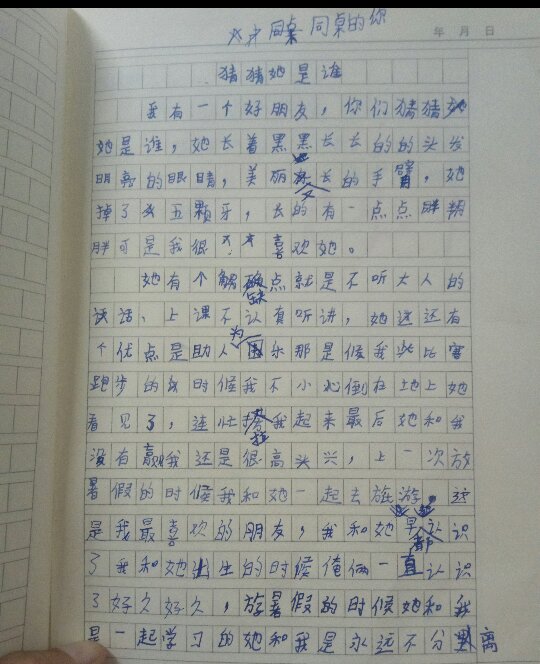 同桌 同桌的你
年 月 日
猜猜她是谁
我有一个好朋友，你们猜猜她
她是谁，她长着黑黑长长的的头发
明亮的眼睛，美丽 长的手臂，她
掉了 五颗牙，长的有一点点胖
胖可是我很 喜欢她。
她有个 缺点就是不听大人的
话，上课不认真听讲，她 还有
个优点是助人为 乐那是候我 比赛
跑步的 时候我不小心倒在土地上她
看见了，连忙 拉我起来最后她和我
没有赢我还是很高 兴，上一次放
暑假的时候我和她一起去旅游。这
是我最喜欢的朋友，我和她早都认识
了我和她出生的时候俺俩一直认识
了好久好久，放暑假的时候她和我
是一起学习的她和我是永远不分 离